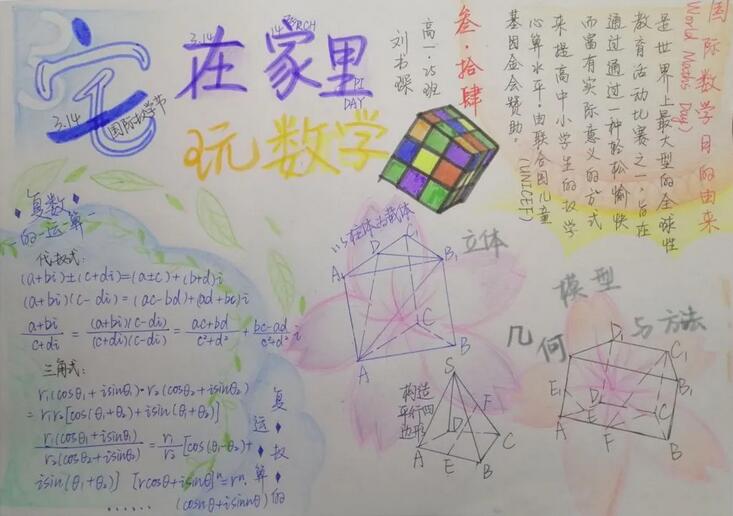 宅在家里
玩数学
3.14
国际数学节
3.14
MARCH
PI
DAY
叁·拾肆
高一·25班
刘书琛
国际数学日的由来
(World Maths Day)
是世界上最大型的全球性
教育活动比赛之一,旨在
通过通过一种轻松愉快
而富有实际意义的方式
来提高中小学生的数学
心算水平!由联合国儿童
基因金会赞助。(UNICEF)
复数
的运算
代数式:
(a+bi)±(c+di)=(a±c)+(b+d)i
(a+bi)(c-di)=(ac-bd)+(ad+bc)i
a+bi/c+di=(a+bi)(c-di)/(c+di)(c-di)=ac+bd/c²+d²+bc-ad/c²+d² i
三角式:
r₁(cosθ₁+isinθ₁)·r₂(cosθ₂+isinθ₂)
=r₁r₂[cos(θ₁+θ₂)+isin(θ₁+θ₂)]
r₁(cosθ₁+isinθ₁)/r₂(cosθ₂+isinθ₂)=r₁/r₂[cos(θ₁-θ₂)+
isin(θ₁+θ₂)] [rcosθ+isinθ]ⁿ=rⁿ
(cosnθ+isinnθ)
……
复数的运算
立体
几何
模型
与方法
D₁ C₁
A₁ B₁
D
C
A B
构造
平行四
边形
S
F
D
C
A
E
B
D₁
C₁
B₁
E₁
D
E
C
A
F
B